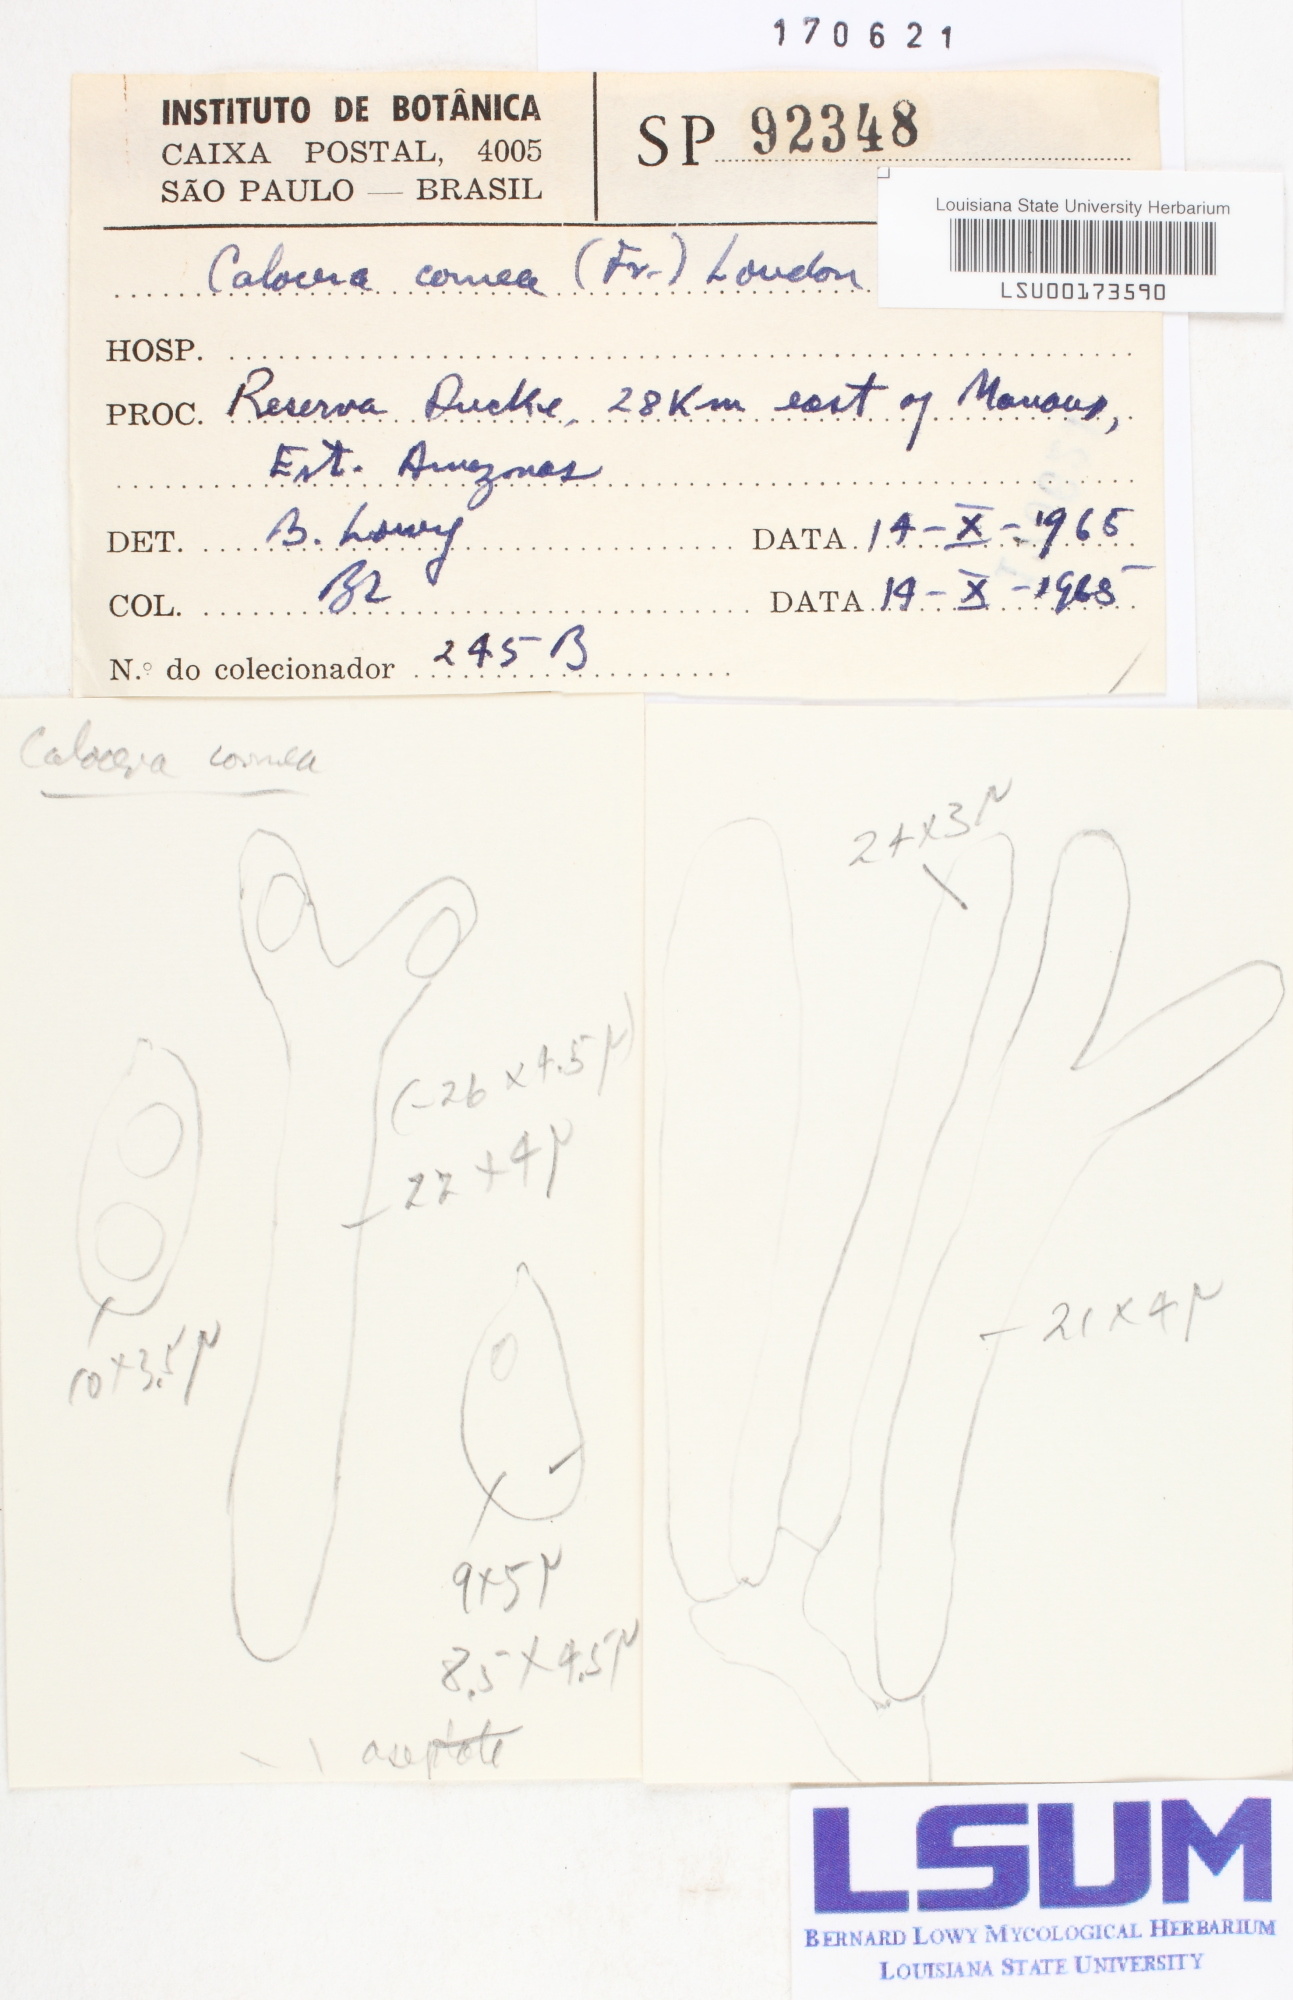 170621
INSTITUTO DE BOTÂNICA
CAIXA POSTAL, 4005
SÃO PAULO — BRASIL
SP 92348
Louisiana State University Herbarium
LSU00173590
Calocera cornea (Fr.) Loudon
HOSP.
PROC. Reserva Ducke, 28 Km east of Manaus,
Est. Amazonas
DET. B. Lowy DATA 14-X-1965
COL. BL DATA 14-X-1965
N.º do colecionador 245 B
Calocera cornea
24x3µ
(-26 x 4.5µ)
22 x 4µ
21 x 4µ
10x3.5µ
9x5µ
8.5 x 4.5µ
aseptate
LSUM
BERNARD LOWY MYCOLOGICAL HERBARIUM
LOUISIANA STATE UNIVERSITY